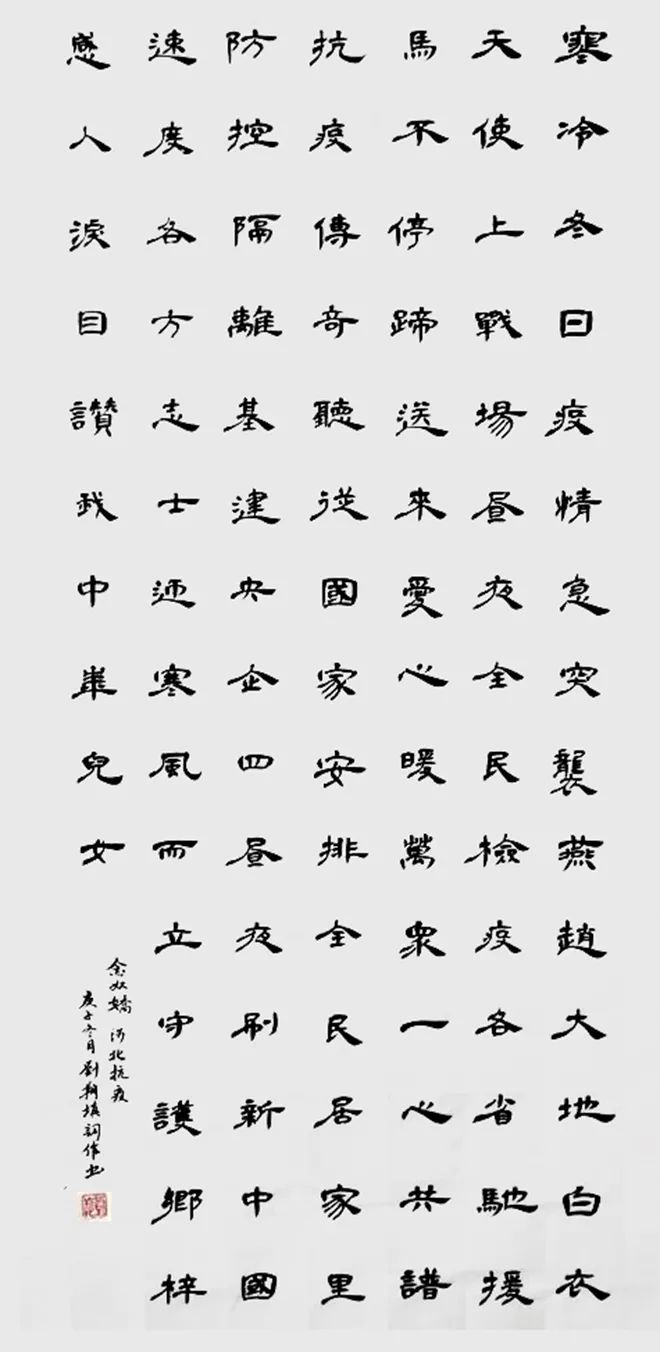 寒冷冬日疫情急突襲燕趙大地白衣
天使上戰場昼夜全民檢疫各省馳援
馬不停蹄送來愛心暖萬衆一心共譜
抗疫傳奇聽從國家安排全民居家里
防控隔離基建央企四昼夜刷新中國
速度各方志士迊寒風而立守護鄉梓
感人淚目讃我中華兒女
念奴嬌 河北抗疫
庚子冬月劉翔填詞作书